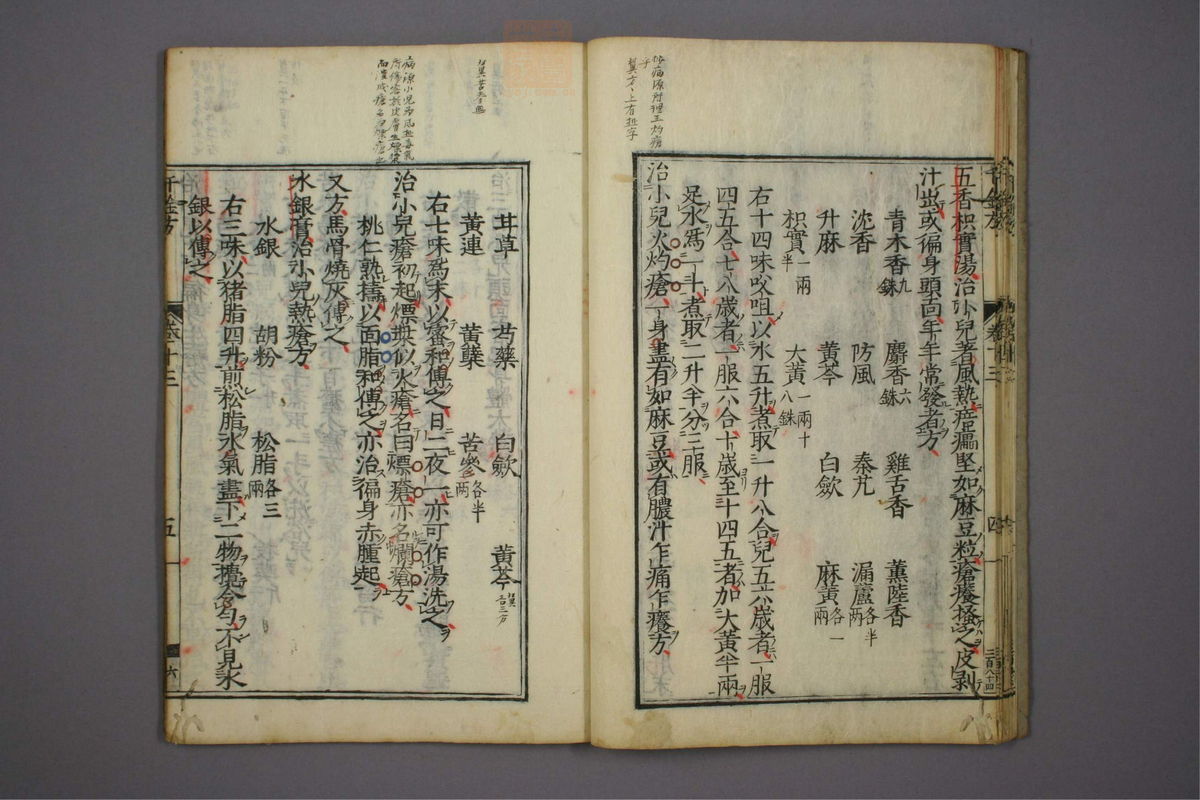 五香枳實湯治小兒著風熱㾦㿔堅如麻豆粒瘡癢搔之皮剥
汁出或徧身頭面年年常發者方
青木香九銖 麝香六銖 雞舌香 薰陸香
沈香 防風 秦艽 漏蘆各半兩
升麻 黃芩 白歛 麻黃各一兩
枳實一兩半 大黃一兩十八銖
右十四味㕮咀以水五升煮取一升八合兒五六歲者一服
四五合七八歲者一服六合十歲至十四五者加大黃半兩
足水爲一斗煮取二升半分三服
治小兒火灼瘡一身盡有如麻豆或有膿汁乍痛乍癢方
千金方
卷十三
四
翼方上有拒字
甘草 芍藥 白歛 黃芩
黃連 黃蘗 苦參各半兩
右七味爲末以蜜和傅之日二夜一亦可作湯洗之
治小兒瘡初起熛漿似火瘡名曰熛瘡亦名爛瘡方
桃仁熟擣以面脂和傅之亦治徧身赤腫起
又方馬骨燒灰傅之
水銀膏治小兒熱瘡方
水銀 胡粉 松脂各三兩
右三味以猪脂四升煎松脂水氣盡下二物攪令勻不見水
銀以傅之
千金方
卷十三
五
六